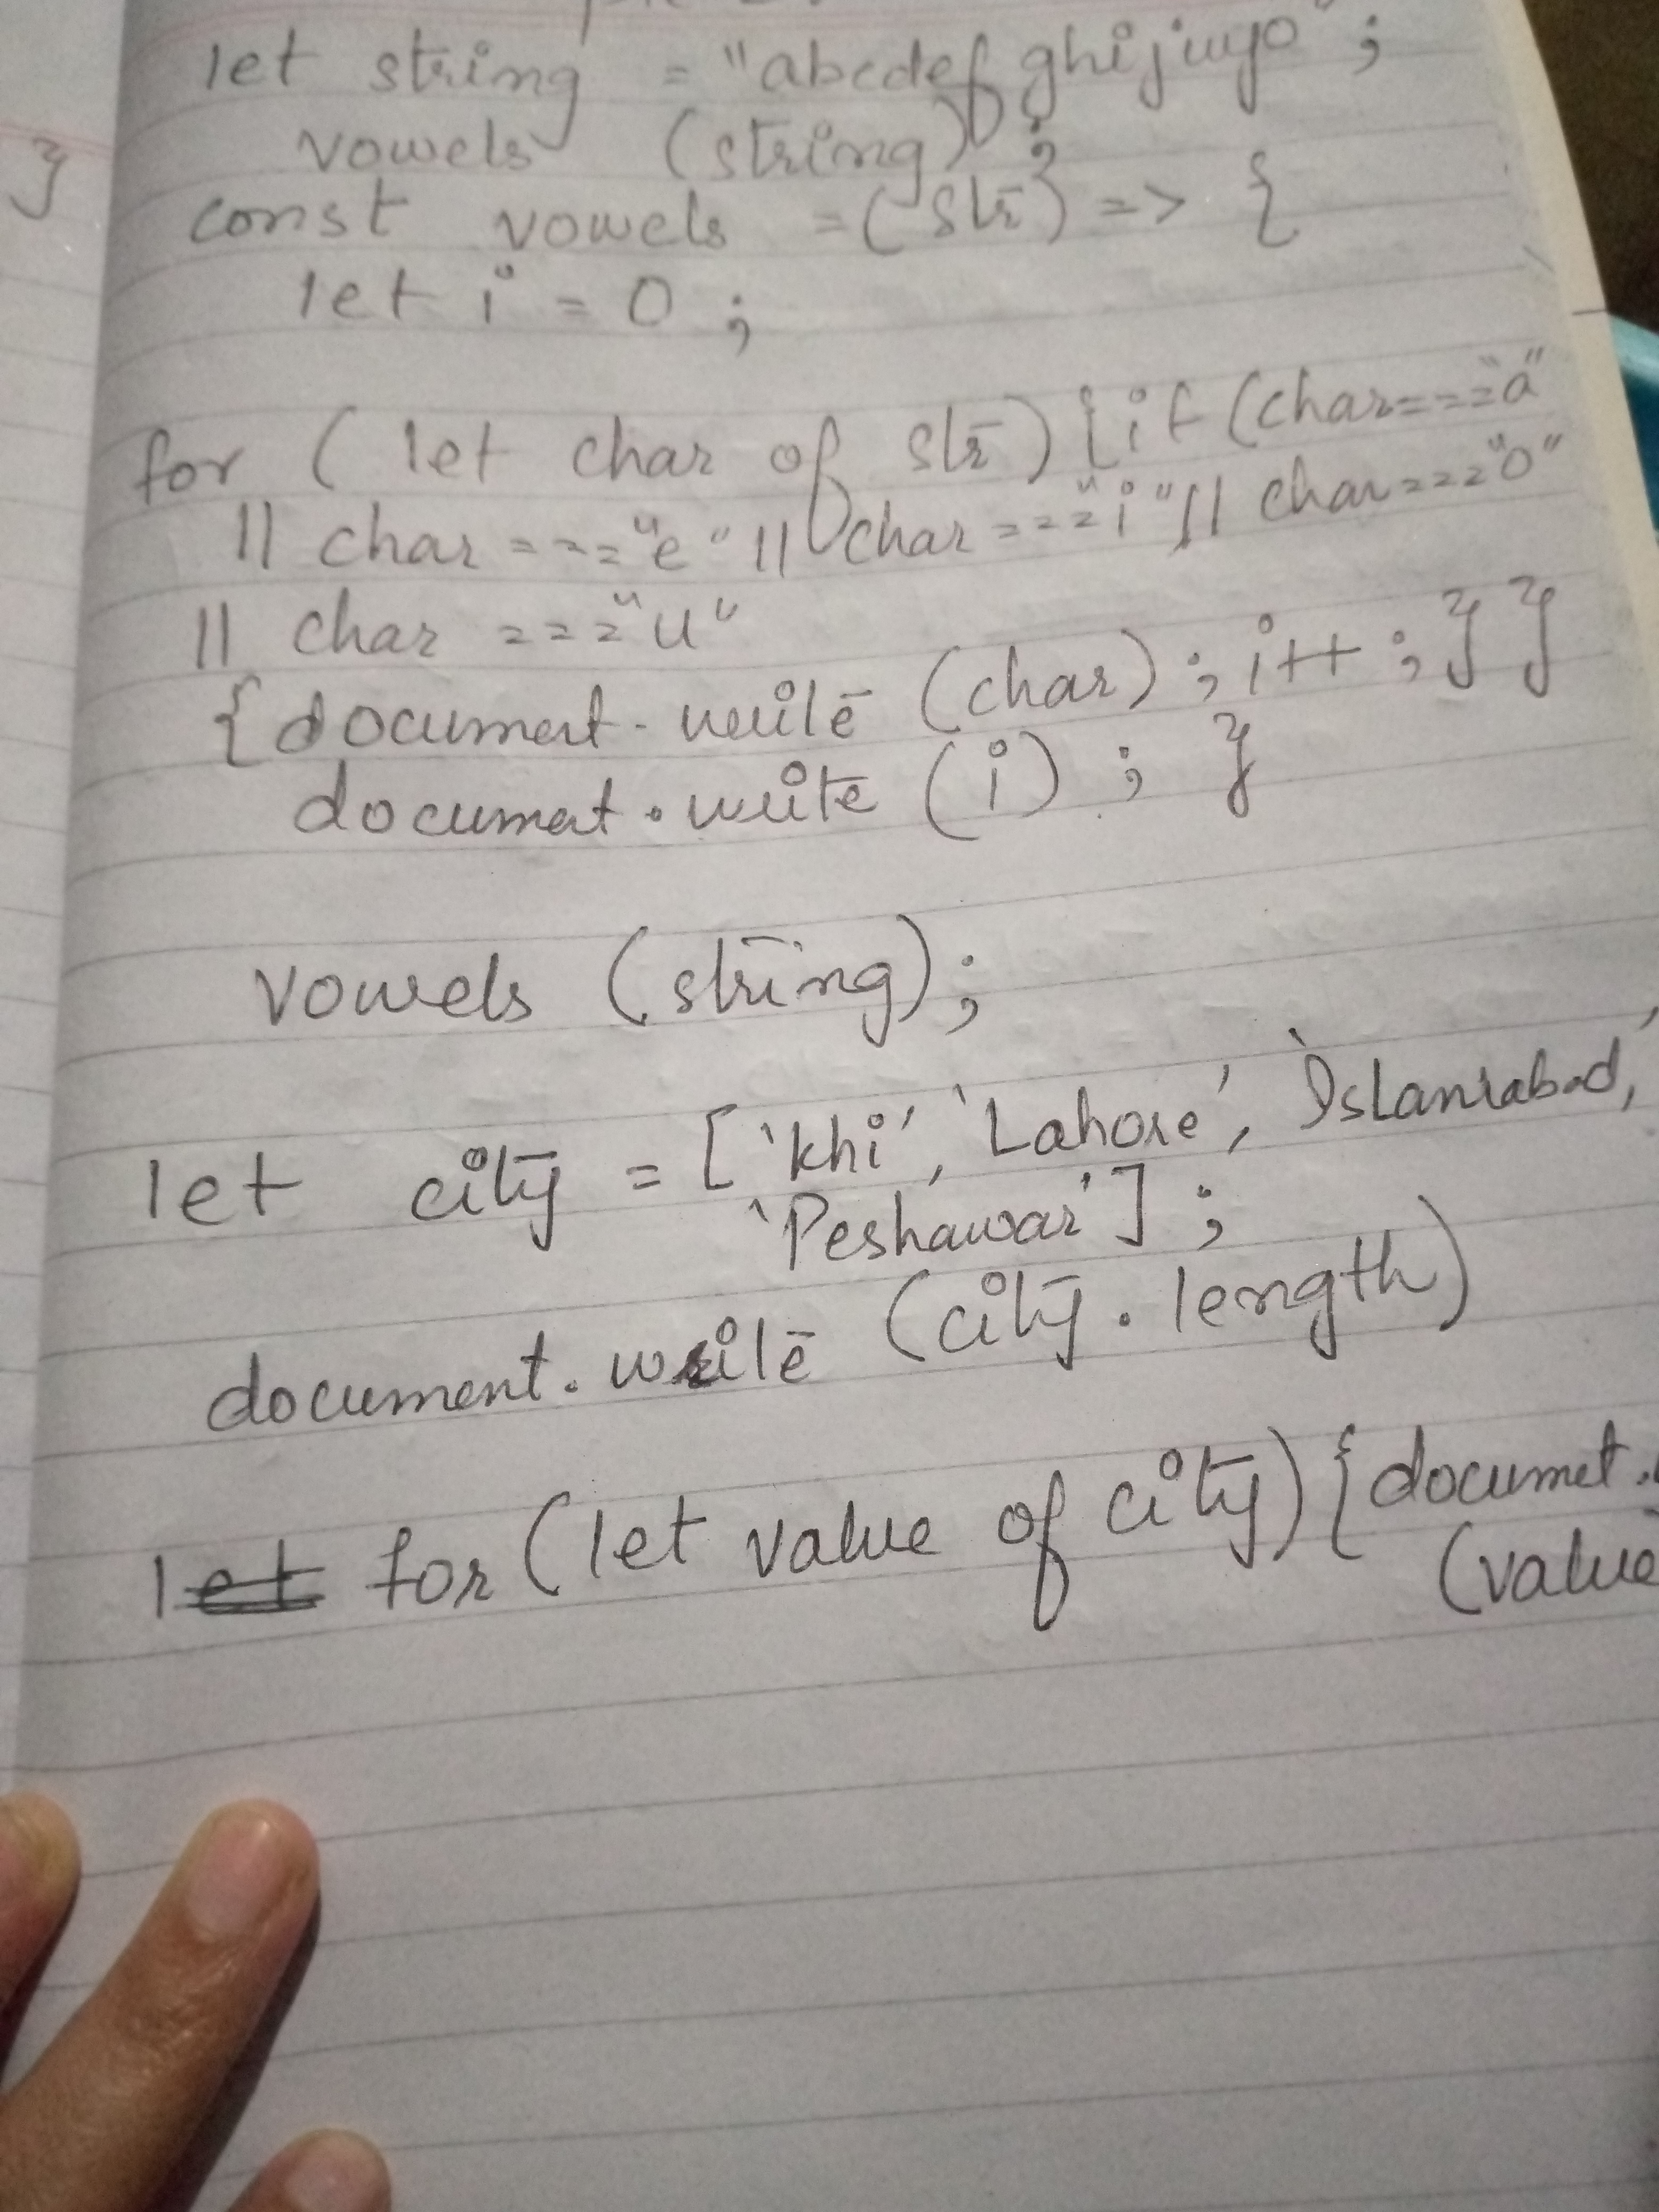 let string = "abcdefghijuyo";
vowels (string);
}
const vowels = (str) => {
let i = 0 ;
for ( let char of str) { if (char==="a"
|| char ==="e" || char ==="i" || char ==="o"
|| char ==="u"
{ document.write (char) ; i++ ; } }
documet.write (i) ; }
vowels (string);
let city = ['khi', 'Lahore', 'Islamabad,'
'Peshawar'] ;
document.write (city.length)
let for (let value of city) { documet.
(value